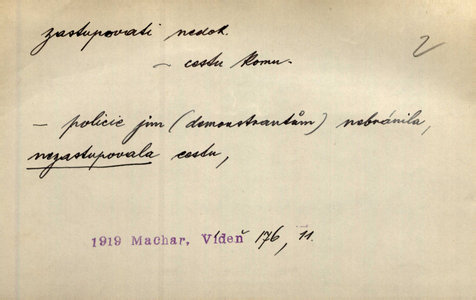 zastupovati nedok.
2
– cestu komu.
– policie jim (demonstrantům) nebránila,
nezastupovala cestu,
1919 Machar, Vídeň 176, 11.